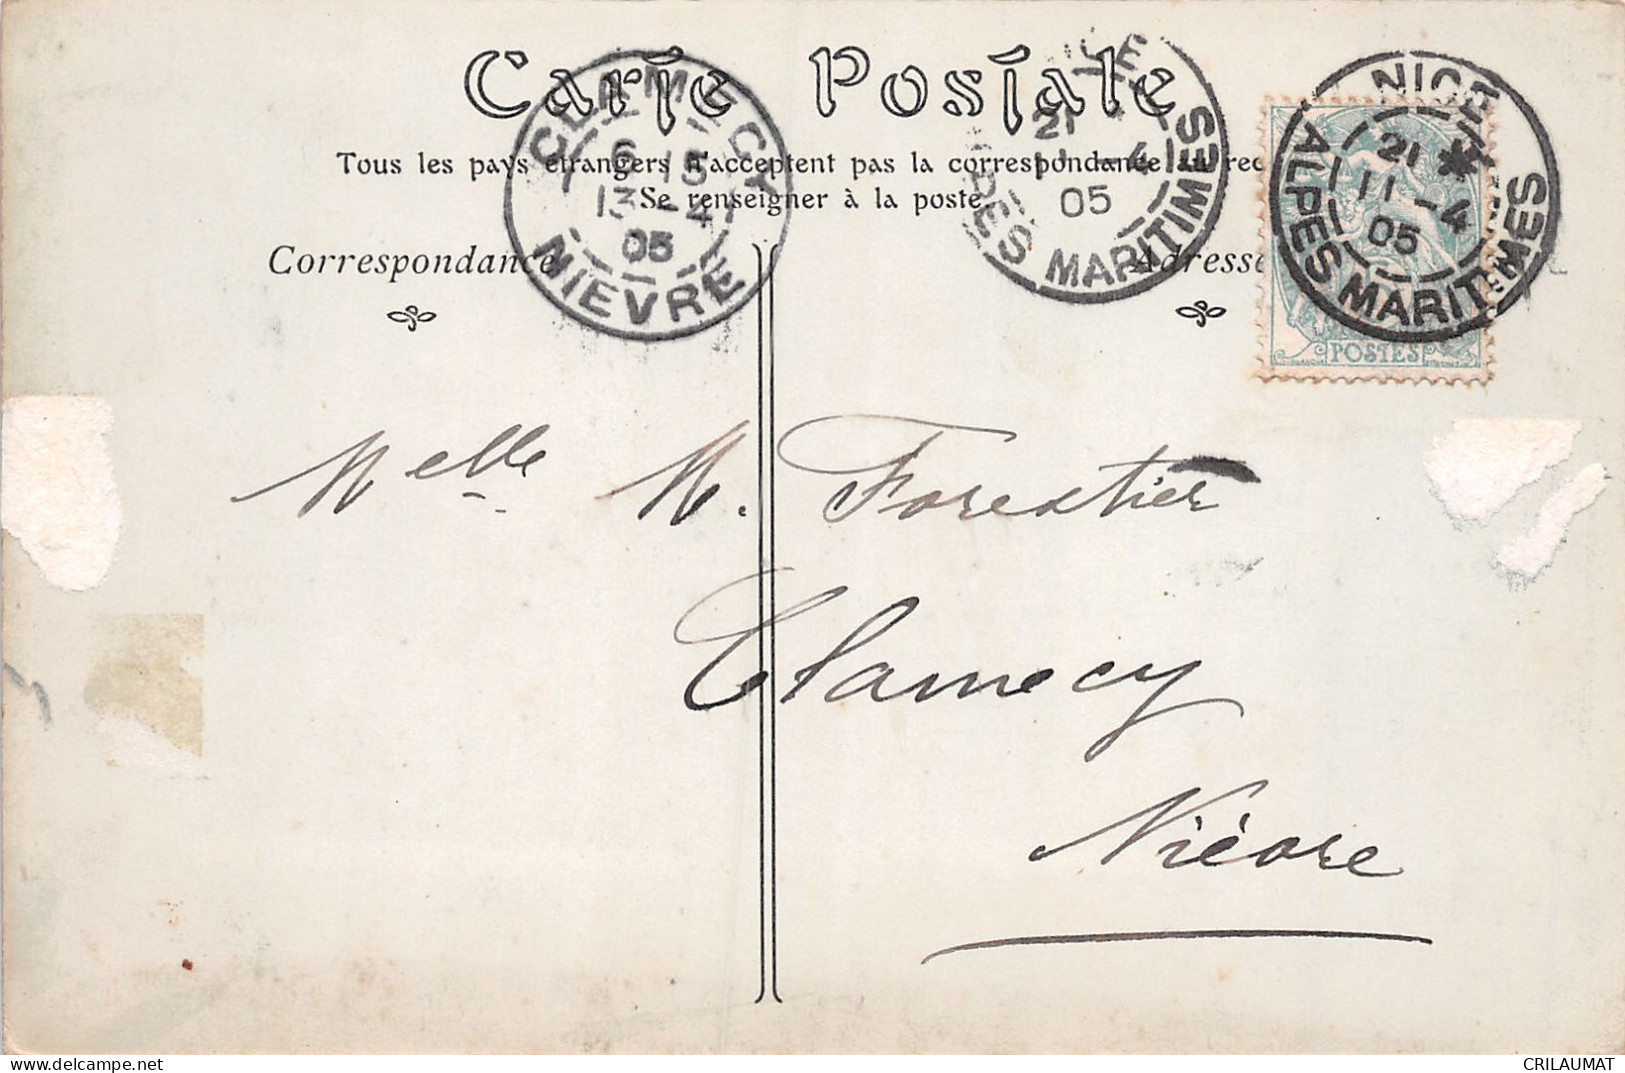 Carte Postale
Tous les pays étrangers n'acceptent pas la correspondance au rec
Se renseigner à la poste.
Correspondance
Adresse
CLAMECY
6 15
13 -4
05
NIEVRE
ICE
21
-4
05
DES MARITIMES
NICE
21 *
11 -4
05
ALPES MARITIMES
POSTES
Melle M. Forestier
Clamecy
Nièvre
delcampe.net
CRILAUMAT